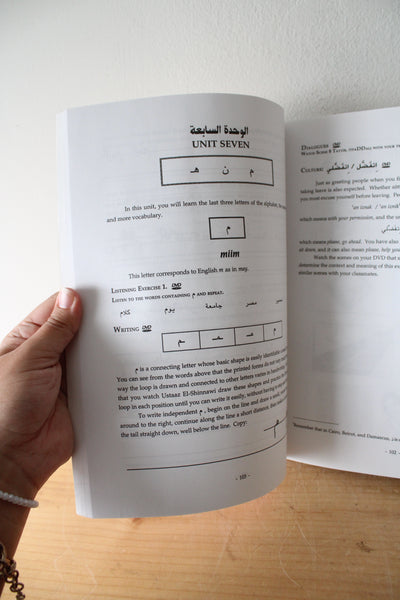 الوحدة السابعة
UNIT SEVEN
م ن هـ
In this unit, you will learn the last three letters of the alphabet,
and more vocabulary.
م
miim
This letter corresponds to English m as in may.
LISTENING EXERCISE 1. DVD
LISTEN TO THE WORDS CONTAINING م AND REPEAT.
مصر جامعة يوم كلام
WRITING DVD
م is a connecting letter whose basic shape is easily identifiable
You can see from the words above that the printed forms do not vary
way the loop is drawn and connected to other letters varies in handwriting
that you watch Ustaaz El-Shinnawi draw these shapes and practice
loop in each position until you can write it easily, without having to
To write independent م, begin on the line and draw a small,
around to the right, continue along the line a short distance, then
the tail straight down, well below the line. Copy:
م
- 103 -
DIALOGUES DVD
WATCH SCENE 8
CULTURE: DVD اتفضّل / اتفضّلي
Just as greeting people when you
taking leave is also expected. Whether
you must excuse yourself before leaving.
'an iznak / 'an iznik
which means with your permission, and the
which means please, go ahead. You have also
sit down, and it can also mean please, help
Watch the scenes on your DVD that
determine the context and meaning of this
similar scenes with your classmates.
Remember that in Cairo, Beirut, and Damascus,
- 102 -